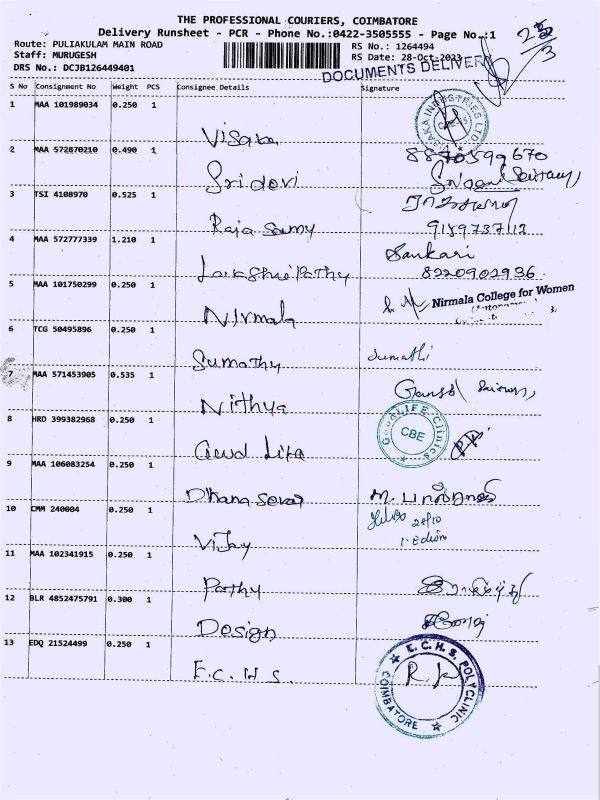 THE PROFESSIONAL COURIERS, COIMBATORE
Delivery Runsheet - PCR - Phone No.:0422-3505555 - Page No.:1
Route: PULIAKULAM MAIN ROAD RS No.: 1264494
Staff: MURUGESH RS Date: 28-Oct-2023
DRS No.: DCJB126449401
DOCUMENTS DELIVERY
S No Consignment No Weight PCS Consignee Details Signature
1 MAA 101989034 0.250 1 Visaka
VISAKA INDUSTRIES LTD
2 MAA 572870210 0.490 1 Sridevi
8870599670
3 TSI 4108970 0.525 1 Raja Samy
9159737112
4 MAA 572777339 1.210 1 Lakshmipathy
Sankari
8220902936
5 MAA 101750299 0.250 1 Nirmala
Nirmala College for Women
6 TCG 50495896 0.250 1 Sumathy
Sumathi
7 MAA 571453905 0.535 1 Nithya
8 HRD 399382968 0.250 1
GoodLIFE Clinics
CBE
9 MAA 106083254 0.250 1 Dhana Sekar
10 CMM 240004 0.250 1 Vijay
28/10
11 MAA 102341915 0.250 1 Parthy
12 BLR 4852475791 0.300 1 Design
13 EDQ 21524499 0.250 1 E.C.H.S.
E.C.H.S. POLYCLINIC
COIMBATORE